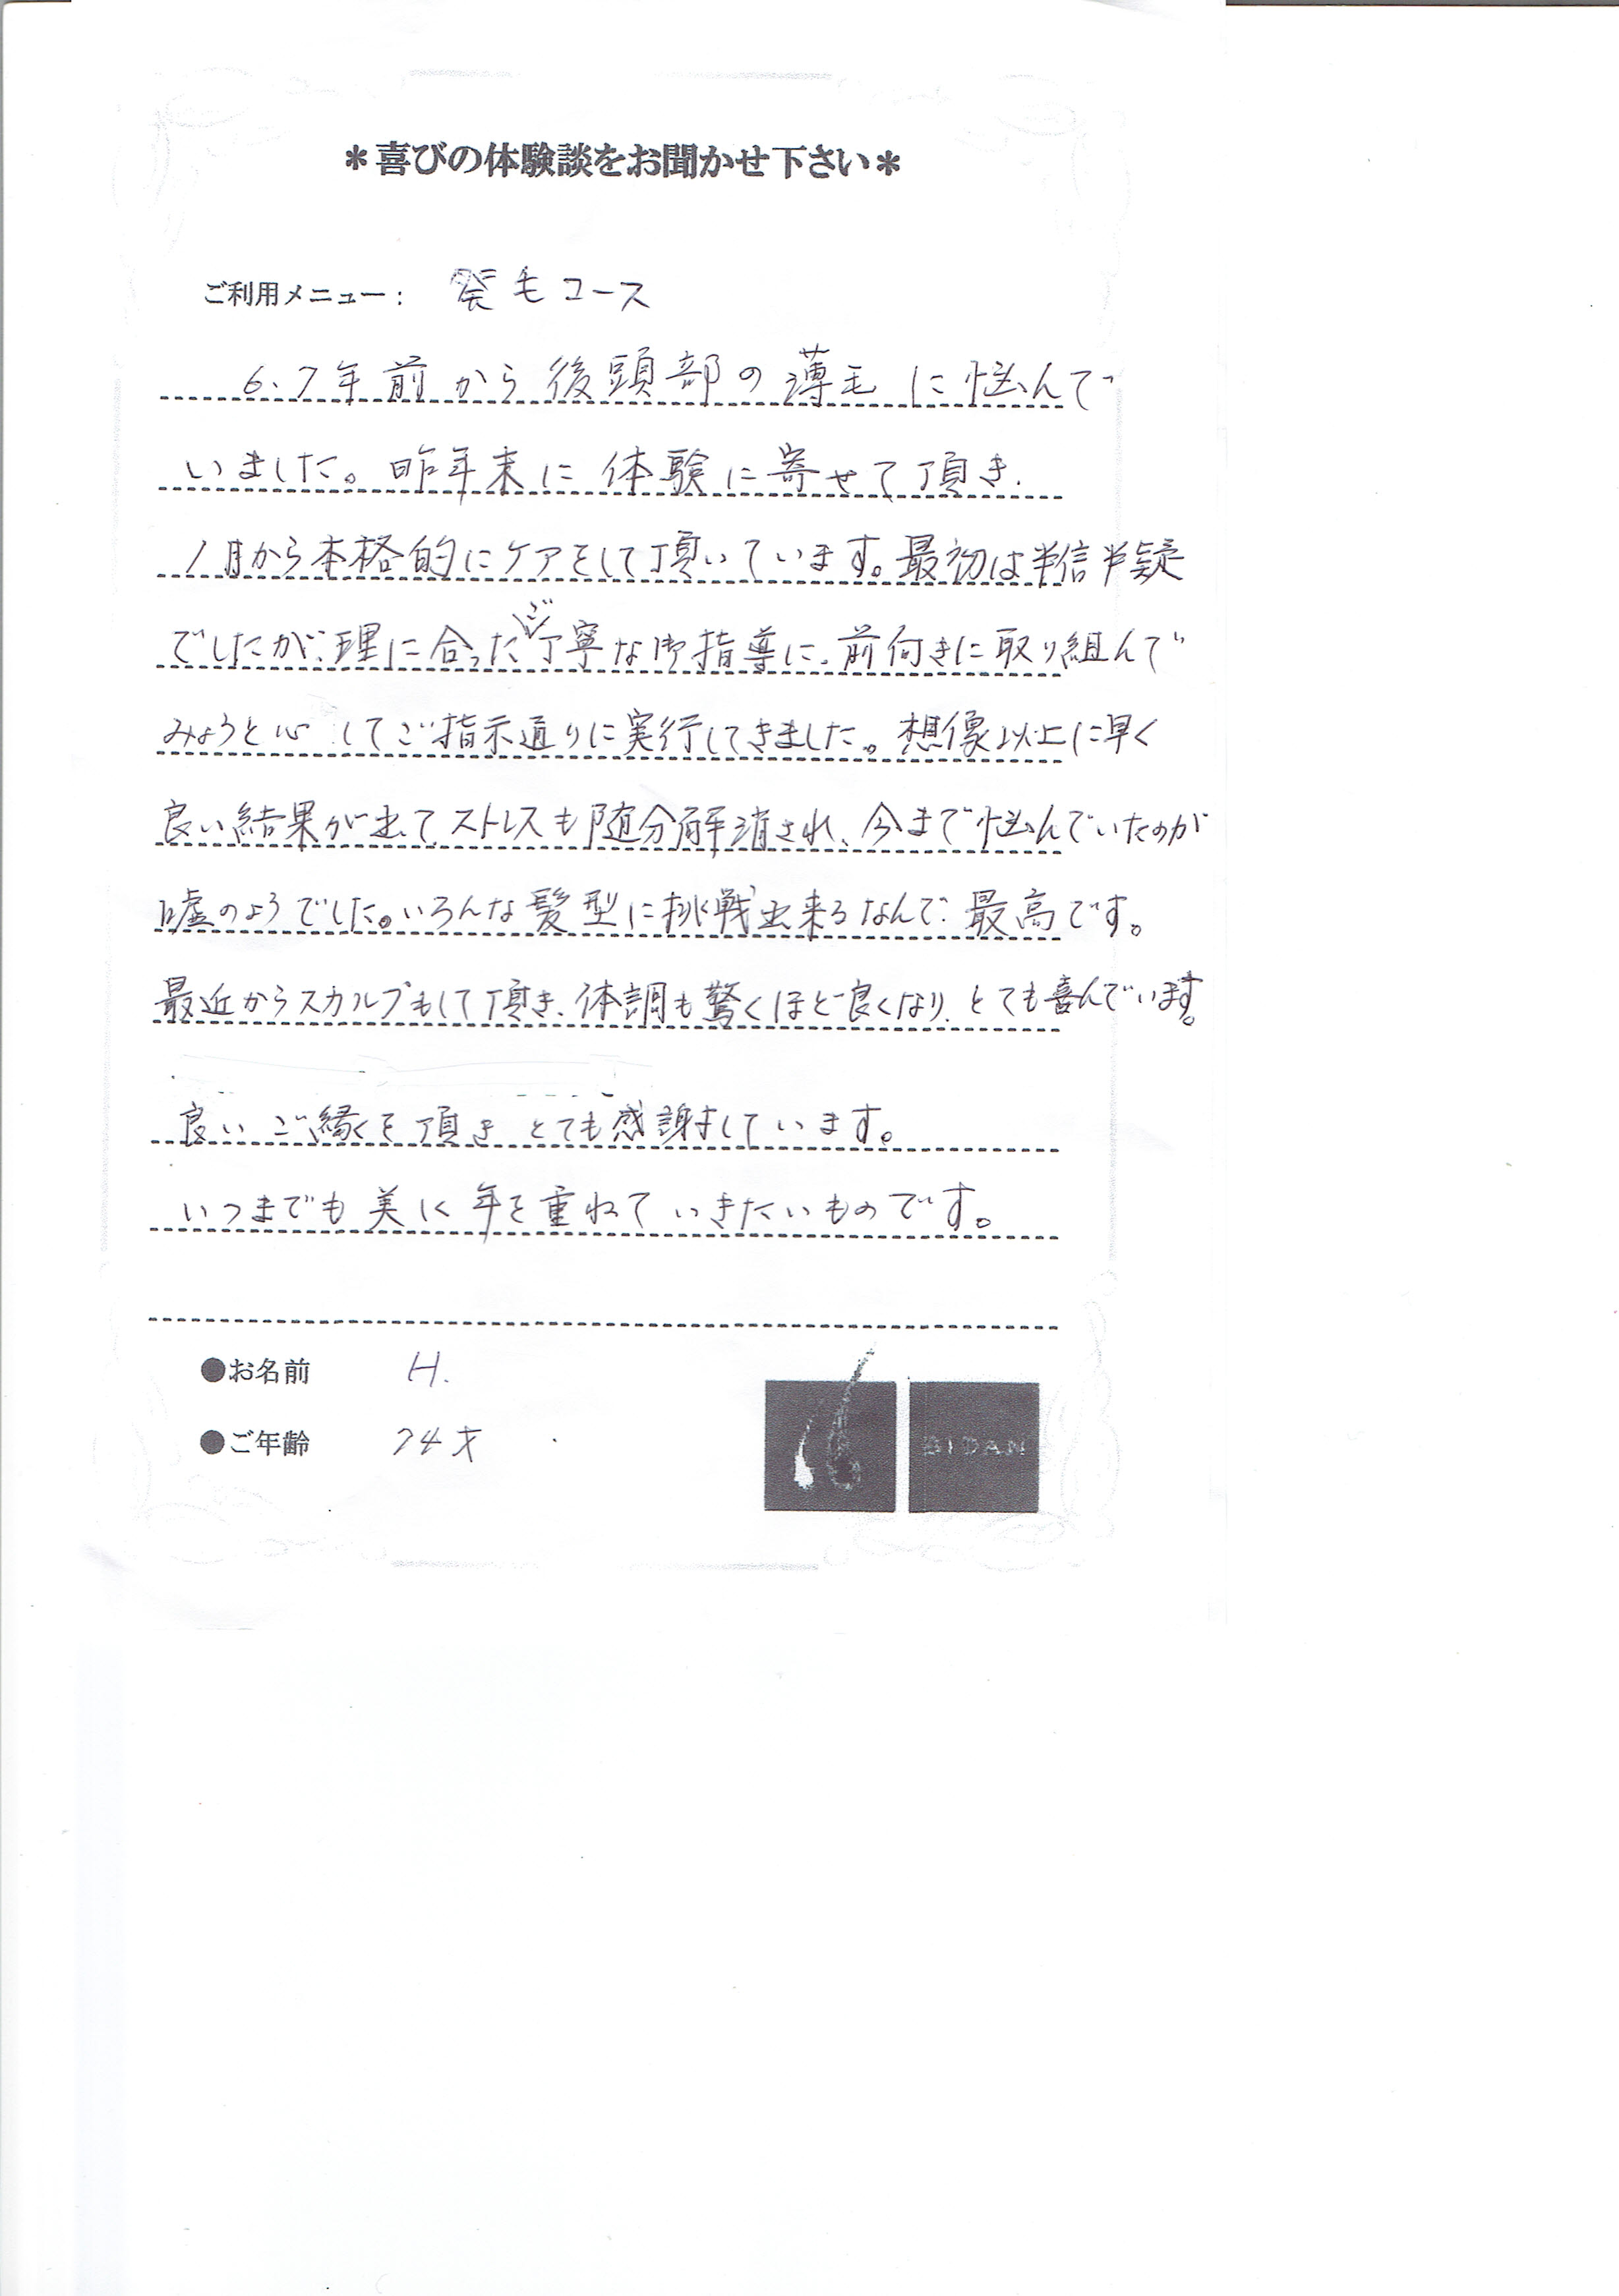 ＊喜びの体験談をお聞かせ下さい＊
ご利用メニュー： 発毛コース
6.7年前から後頭部の薄毛に悩んで
いました。昨年末に体験に寄せて頂き.
1月から本格的にケアをして頂いています。最初は半信半疑
でしたが、理に合ったご丁寧な御指導に、前向きに取り組んで
みようと心 してご指示通りに実行してきました。想像以上に早く
良い結果が出て ストレスも随分解消され、今まで悩んでいたのが
嘘のようでした。いろんな髪型に挑戦出来るなんて 最高です。
最近からスカルプもして頂き、体調も驚くほど良くなり、とても喜んでいます。
良い ご縁を頂き とても感謝しています。
いつまでも美しく年を重ねていきたいものです。
●お名前 H.
●ご年齢 74才
BIDAN